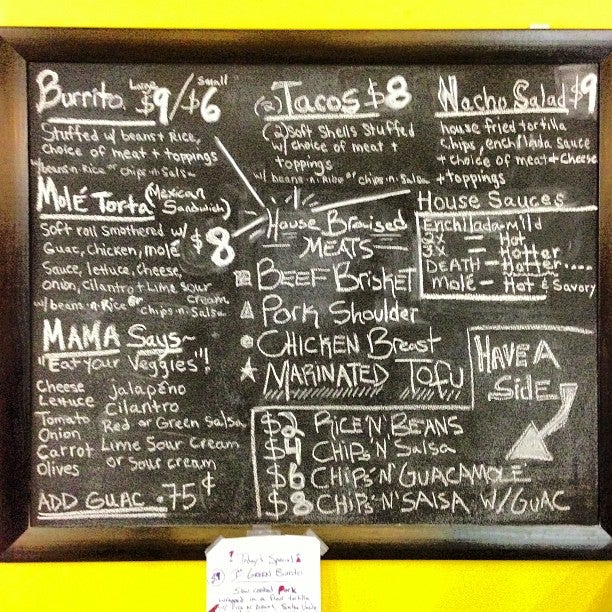 Burrito Large $9/ Small $6
Stuffed w/ beans + Rice,
choice of meat + toppings
w/ beans-n-Rice or chips-n-Salsa
Molé Torta (Mexican Sandwich) $8
Soft roll smothered w/
Guac, chicken, molé
Sauce, lettuce, cheese,
onion, cilantro + Lime sour cream
w/ beans-n-Rice or chips-n-Salsa
MAMA Says~
"Eat your Veggies"!
Cheese
Lettuce
Tomato
Onion
Carrot
Olives
jalapéno
Cilantro
Red or Green Salsa
Lime Sour Cream
or Sour cream
ADD GUAC .75¢
(2) Tacos $8
(2) Soft Shells Stuffed
w/ choice of meat +
toppings
w/ beans-n-Rice or chips-n-Salsa
House Braised
MEATS
BEEF BRISKET
Pork Shoulder
CHICKEN Breast
MARINATED TOFU
Nacho Salad $9
house fried tortilla
chips, enchilada sauce
+ choice of meat + Cheese
+ toppings
House Sauces
Enchilada - mild
2X - Hot
3X - Hotter
DEATH - Hotter....
molé - Hot & Savory
HAVE A
SIDE
$2 RICE 'N' BEANS
$4 CHIPS 'N' SALSA
$6 CHIPS 'N' GUACAMOLE
$8 CHIPS 'N' SALSA W/ GUAC
! Today's Special!
$9 GREEN Burrito
Slow cooked Pork
wrapped in a flour tortilla